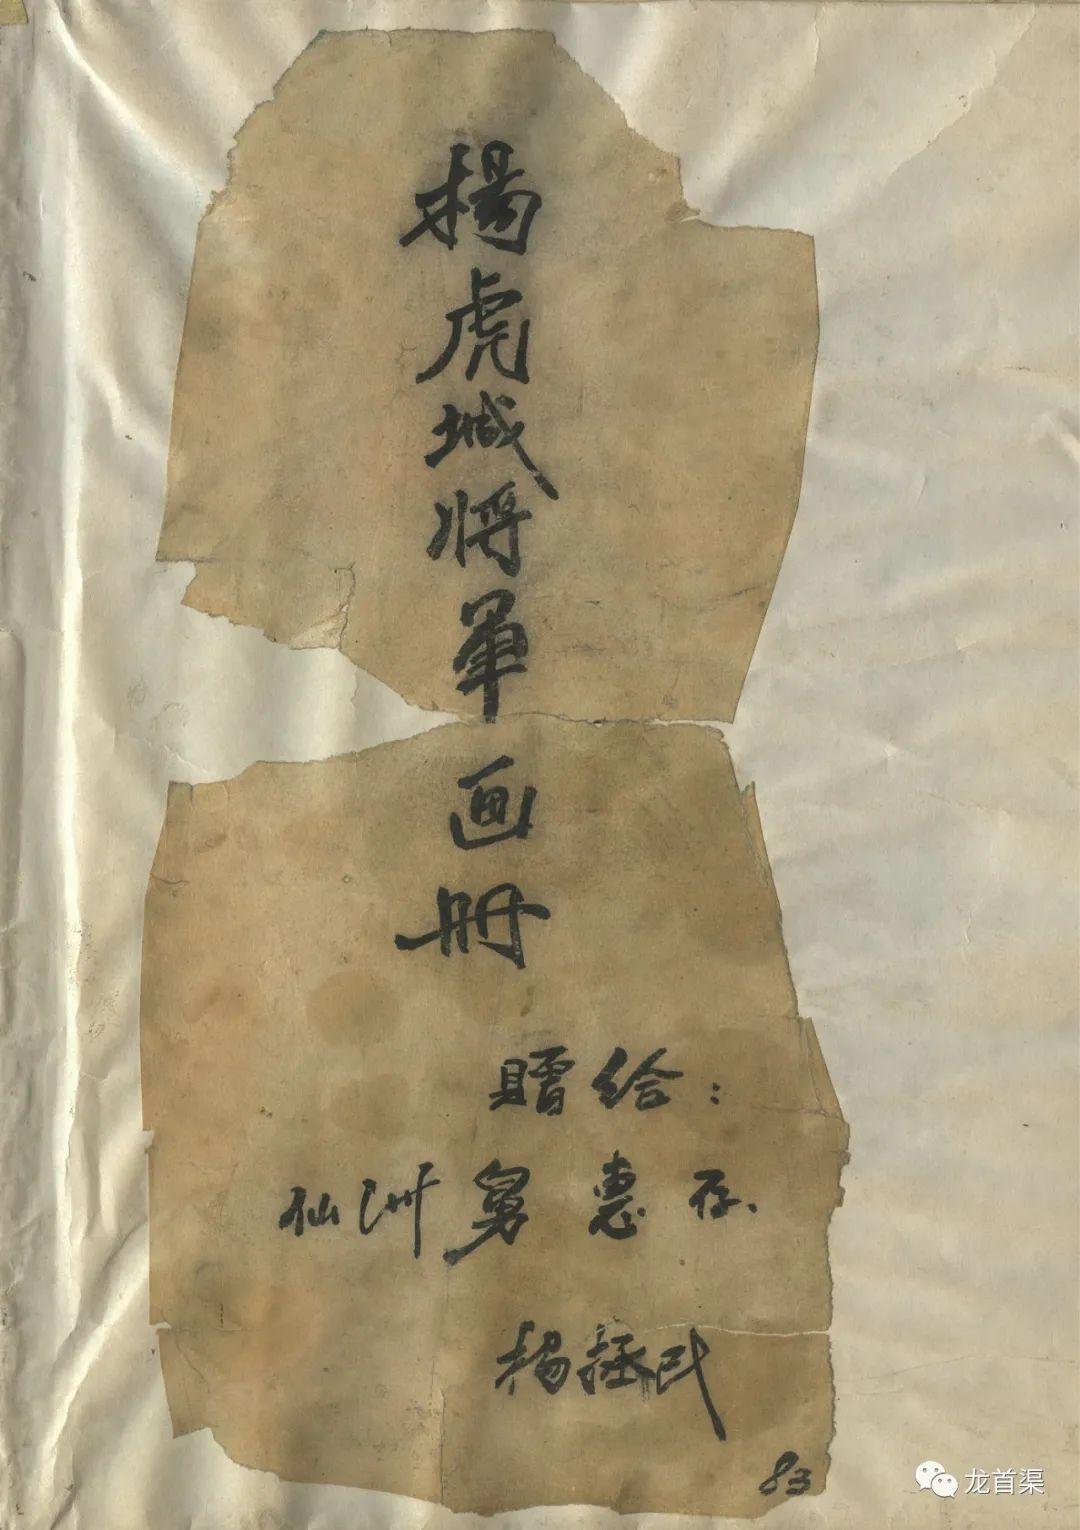 楊虎城将軍画册
贈给：
仙洲舅惠存、
杨拯民
83
龙首渠